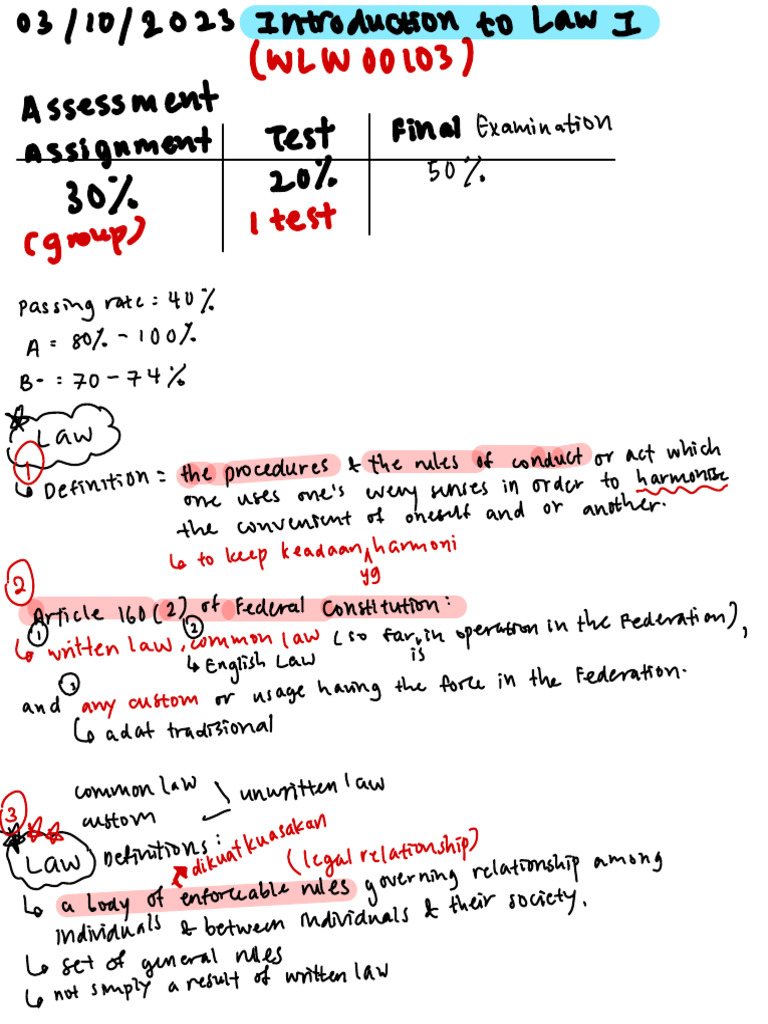 03/10/2023 Introduction to Law I
(WLW00103)
Assessment
Assignment Test Final Examination
30% 20% 50%
(group) 1 test
Passing rate : 40%
A = 80% - 100%
B- : 70 - 74%
Law
① ↳ Definition = the procedures & the rules of conduct or act which
one uses one's every senses in order to harmonise
the convenient of oneself and or another.
↳ to keep keadaan yg harmoni
②
Article 160(2) of Federal Constitution :
↳ ① written law, ② common law (so far is in operation in the Federation),
↳ English Law
and ③ any custom or usage having the force in the Federation.
↳ adat tradisional
common law
custom
unwritten law
③
Law Definitions :
dikuatkuasakan
(legal relationship)
↳ a body of enforceable rules governing relationship among
individuals & between individuals & their society.
↳ set of general rules
↳ not simply a result of written law